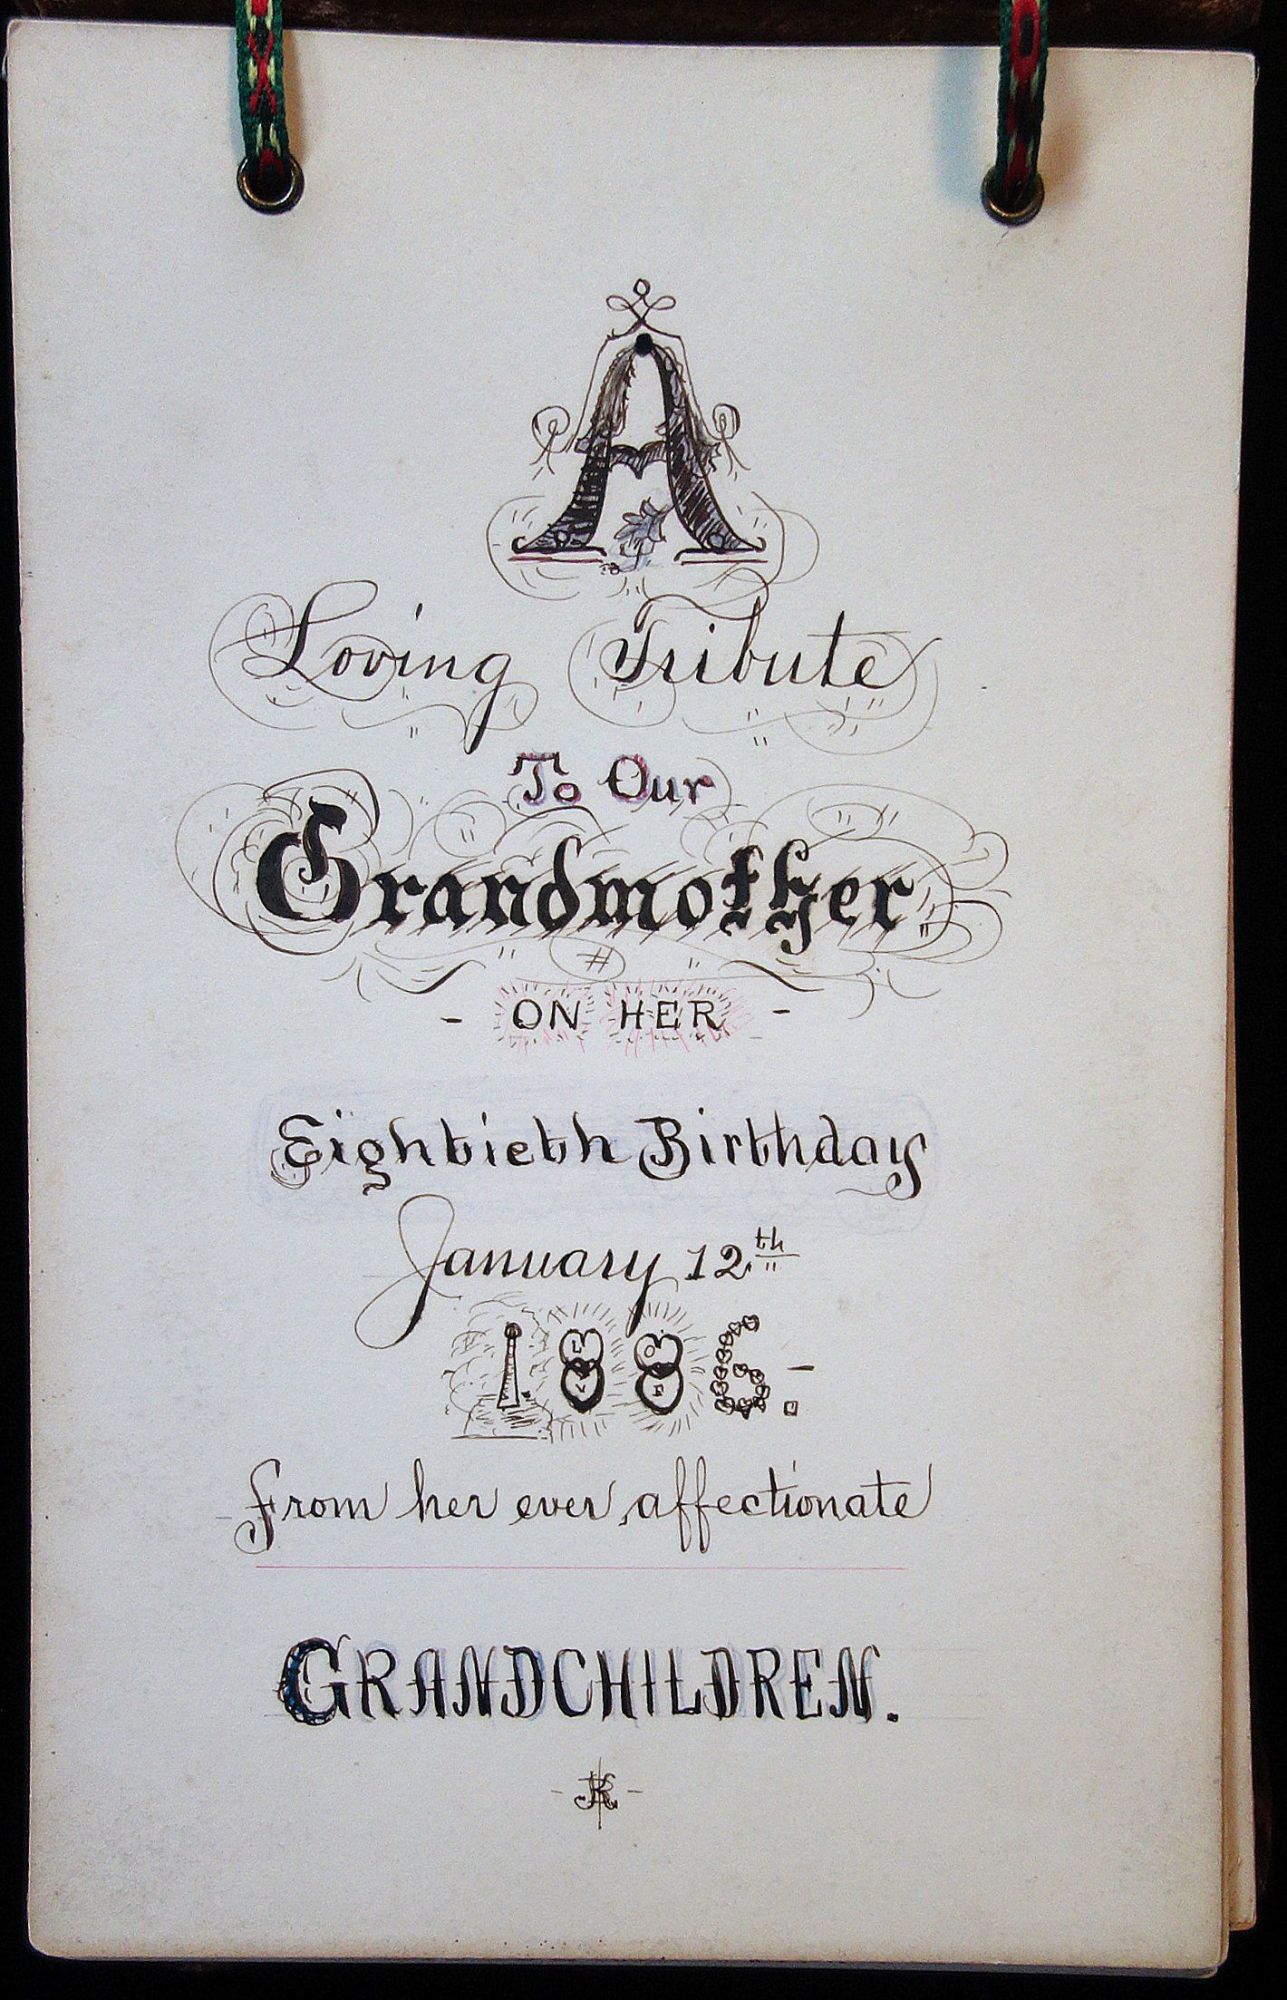 A
Loving Tribute
To Our
Grandmother
- ON HER -
Eightieth Birthday
January 12th
1886.-
From her ever affectionate
GRANDCHILDREN.